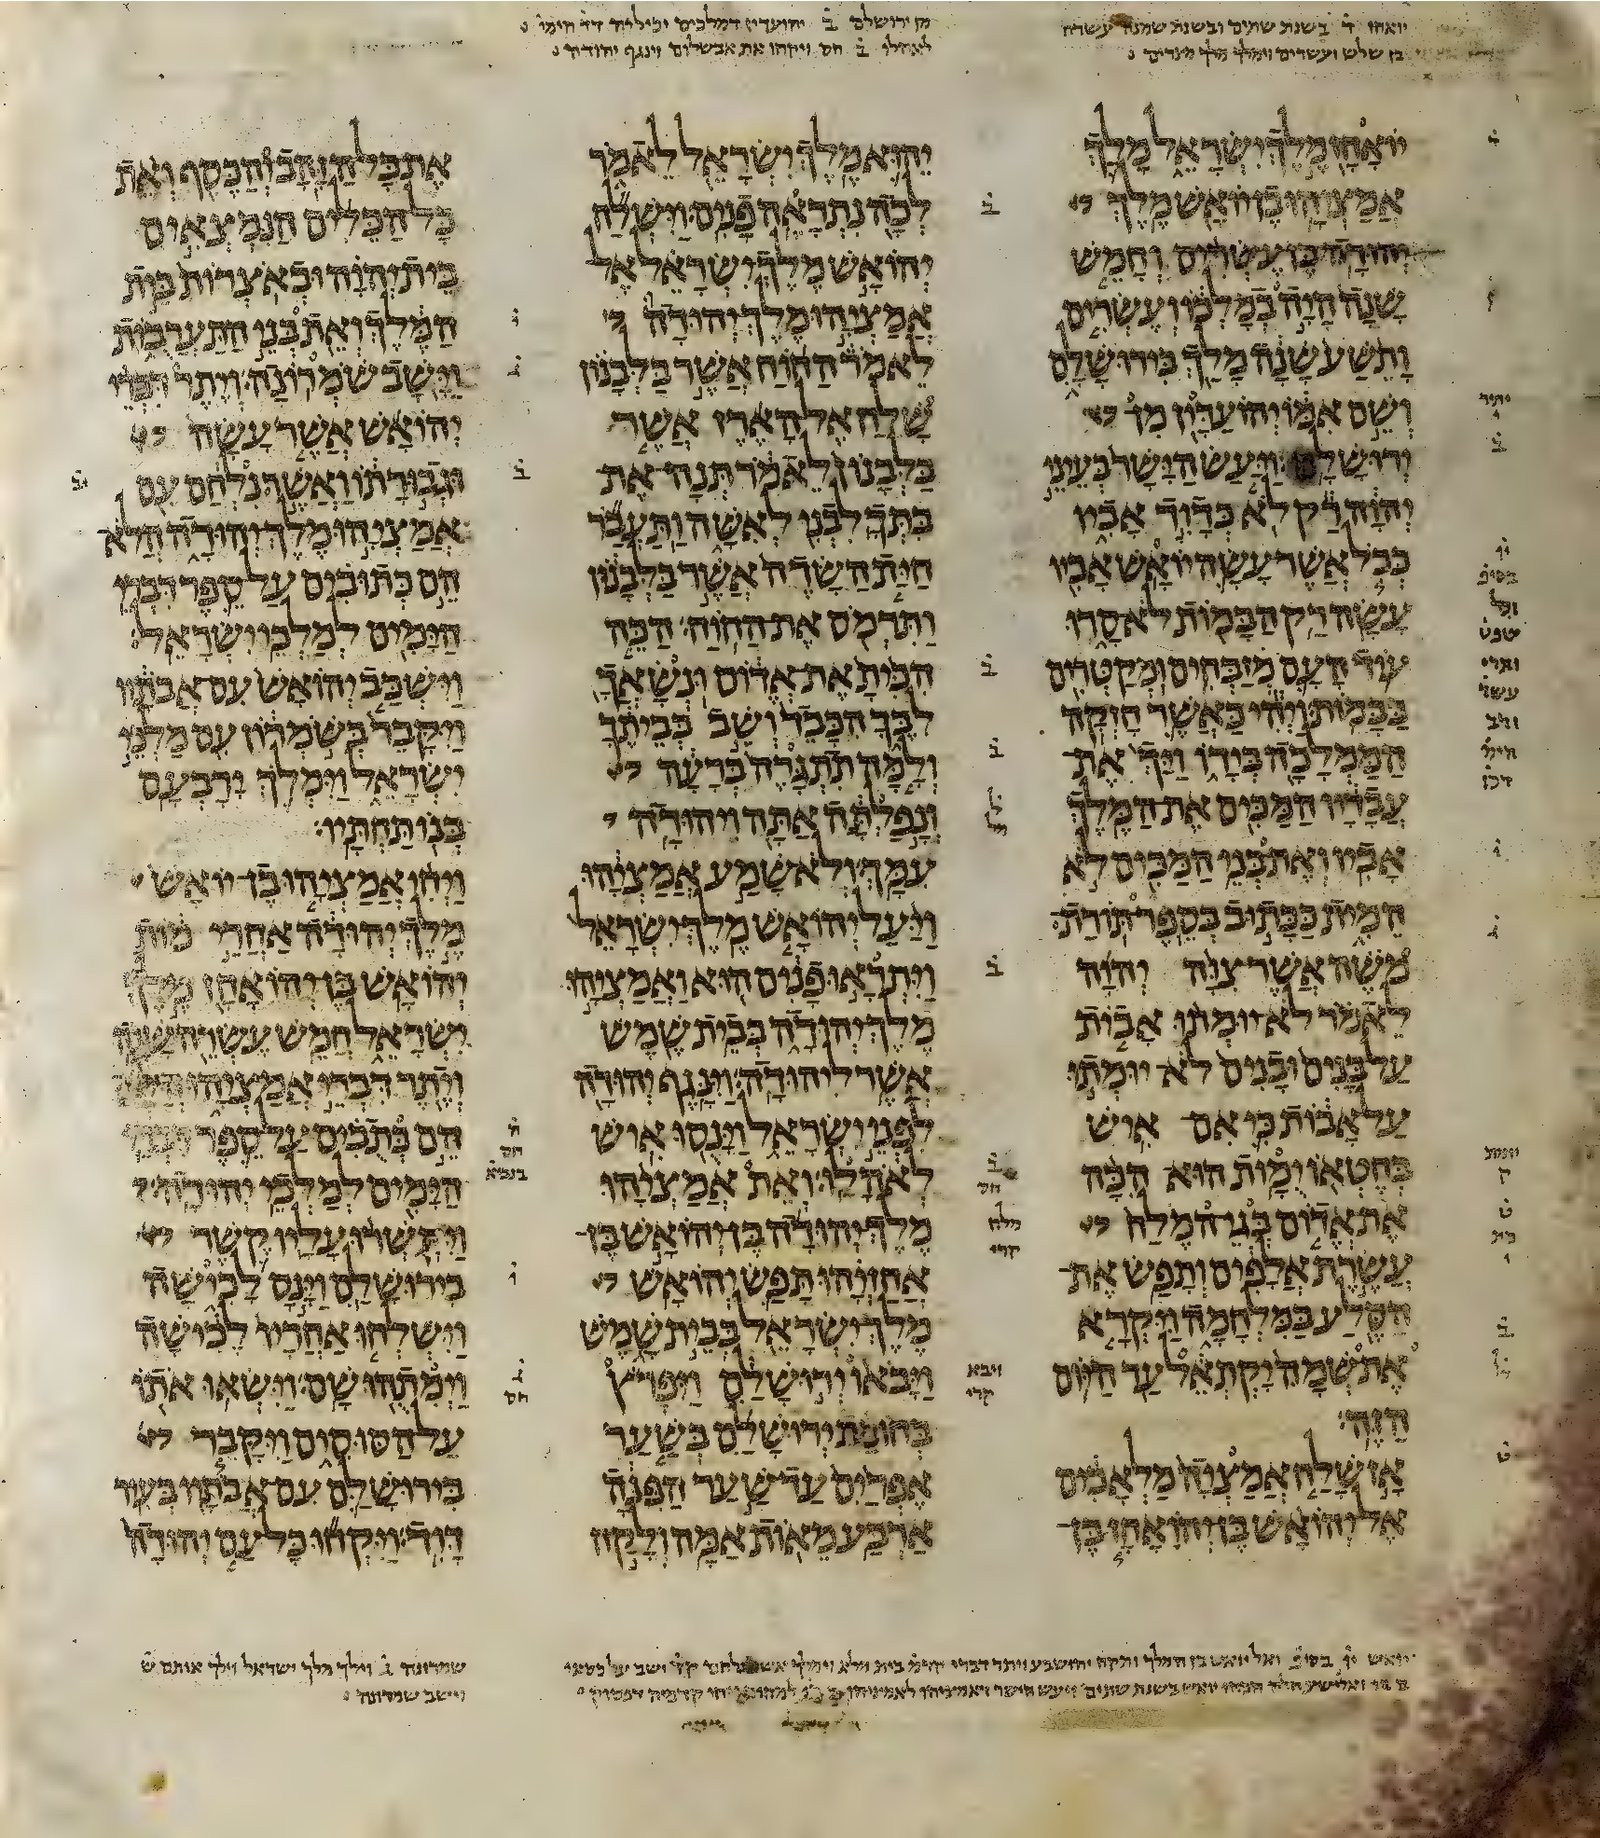 יואחז ד̇ בשנת שתים ובשנת שמנה עשרה
בן שלש ועשרים וימלך מלך
מן ירושלם ב̇ יהועדין דמלכים
לאהלו ב̇ חס ויקחו את אבשלום וינגף יהודה
יואחז מלך ישראל מלך
אמציהו בן יואש מלך
יהודה׃ בן עשרים וחמש
שנה היה במלכו ועשרים
ותשע שנה מלך בירושלם
ושם אמו יהועדין מן
ירושלם׃ ויעש הישר בעיני
יהוה רק לא כדוד אביו
ככל אשר עשה יואש אביו
עשה׃ רק הבמות לא סרו
עוד העם מזבחים ומקטרים
בבמות׃ ויהי כאשר חזקה
הממלכה בידו ויך את־
עבדיו המכים את המלך
אביו׃ ואת בני המכים לא
המית ככתוב בספר תורת־
משה אשר צוה יהוה
לאמר לא יומתו אבות
על בנים ובנים לא יומתו
על אבות כי אם איש
בחטאו ימות׃ הוא הכה
את אדום בגי המלח
עשרת אלפים ותפש את־
הסלע במלחמה ויקרא
את שמה יקתאל עד היום
הזה׃
אז שלח אמציה מלאכים
אל יהואש בן יהואחז בן־
יהוא מלך ישראל לאמר
לכה נתראה פנים׃ וישלח
יהואש מלך ישראל אל
אמציהו מלך יהודה
לאמר החוח אשר בלבנון
שלח אל הארז אשר
בלבנון לאמר תנה את־
בתך לבני לאשה ותעבר
חית השדה אשר בלבנון
ותרמס את החוח׃ הכה
הכית את־אדום ונשאך
לבך הכבד ושב בביתך
ולמה תתגרה ברעה
ונפלתה אתה ויהודה
עמך׃ ולא שמע אמציהו
ויעל יהואש מלך ישראל
ויתראו פנים הוא ואמציהו
מלך יהודה בבית שמש
אשר ליהודה׃ וינגף יהודה
לפני ישראל וינסו איש
לאהלו׃ ואת אמציהו
מלך יהודה בן יהואש בן־
אחזיהו תפש יהואש
מלך ישראל בבית שמש
ויבאו ירושלם ויפרץ
בחומת ירושלם בשער
אפרים עד שער הפנה
ארבע מאות אמה׃ ולקח
את כל הזהב והכסף ואת
כל הכלים הנמצאים
בית יהוה ובאצרות בית
המלך ואת בני התערבות
וישב שמרונה׃ ויתר דברי
יהואש אשר עשה
וגבורתו ואשר נלחם עם
אמציהו מלך יהודה הלא־
הם כתובים על ספר דברי
הימים למלכי ישראל׃
וישכב יהואש עם אבתיו
ויקבר בשמרון עם מלכי
ישראל וימלך ירבעם
בנו תחתיו׃
ויחי אמציהו בן־יואש
מלך יהודה אחרי מות
יהואש בן יהואחז מלך
ישראל חמש עשרה שנה׃
ויתר דברי אמציהו הלא
הם כתבים על ספר דברי
הימים למלכי יהודה׃
ויקשרו עליו קשר
בירושלם וינס לכישה
וישלחו אחריו לכישה
וימתהו שם׃ וישאו אתו
על הסוסים ויקבר
בירושלם עם אבתיו בעיר
דוד׃ ויקחו כל עם יהודה
שמרונה ג̇ וילך מלך ישראל וילך אותם
וישב שמרונה